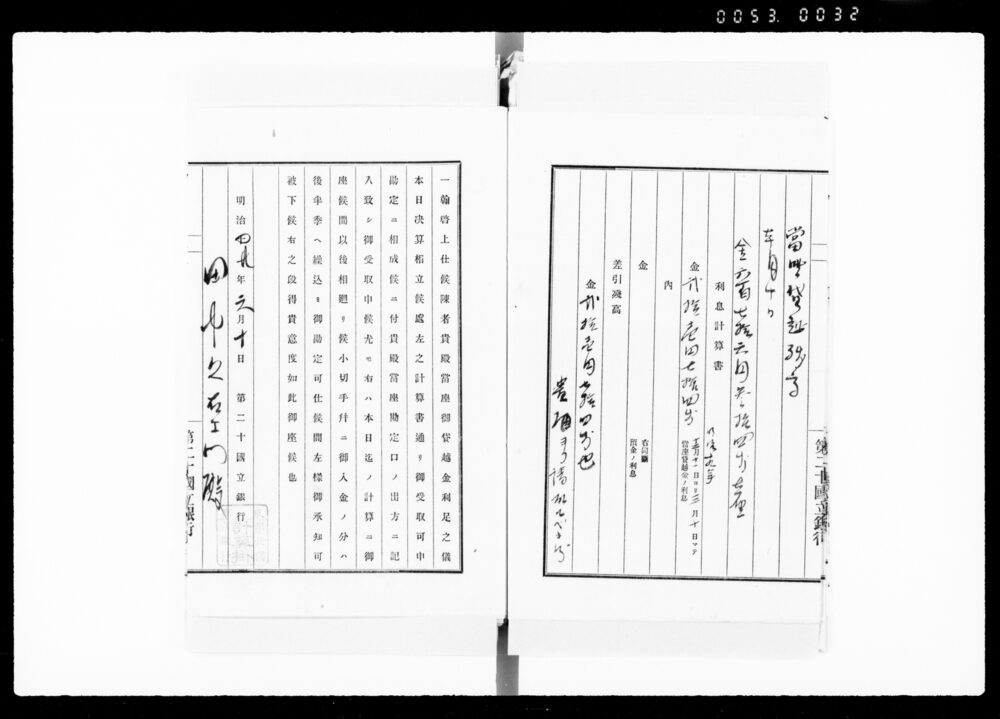 0053. 0032
當坐貸越残高
六月十日
金六百七拾六円参拾四戔
利息計算書
金弐拾壱円七拾四戔
十二月十一日ヨリ六月十日マテ
當座貸越金ノ利息
内
金
右同斷
預金ノ利息
差引殘高
金弐拾壱円七拾四戔也
第二十國立銀行
一翰啓上仕候陳者貴殿當座御貸越金利足之儀
本日決算相立候處左之計算書通リ御受取可申
勘定ニ相成候ニ付貴殿當座勘定口ノ出方ニ記
入致シ御受取申候尤モ右ハ本日迄ノ計算ニ御
座候間以後相廻リ候小切手幷ニ御入金ノ分ハ
後半季ヘ繰込ミ御勘定可仕候間左樣御承知可
被下候右之段得貴意度如此御座候也
明治廿九年六月十日 第二十國立銀行
田中久右エ門殿
第二十國立銀行